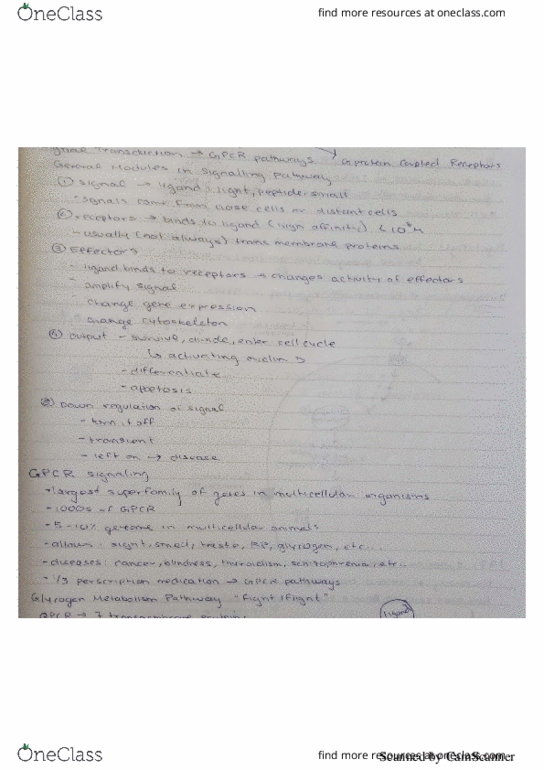 OneClass
find more resources at oneclass.com
Signal Transduction → GPCR pathways → G protein Coupled Receptors
General Modules in Signalling Pathway
① signal → ligand: light, peptide, small
- signals come from close cells or distant cells
② receptors → binds to ligand (high affinity)
- usually (not always) trans membrane proteins
③ Effectors
- ligand binds to receptors → changes activity of effectors
- amplify signal
- change gene expression
- change cytoskeleton
④ output - survive, divide, enter cell cycle
↳ activating cyclin D
- differentiate
- apoptosis
⑤ Down regulation of signal
- turn it off
- transient
- left on → disease
GPCR signaling
- largest superfamily of genes in multicellular organisms
- 1000s of GPCR
- genome in multicellular animals
- allows: sight, smell, taste, BP, glycogen, etc...
- diseases: cancer, blindness, thyroidism, schizophrenia, etc..
- 1/3 perscription medication → GPCR pathways
Glycogen Metabolism Pathway "Fight/Flight"
GPCR → 7
ligand
OneClass
find more resources at oneclass.com
Scanned by CamScanner